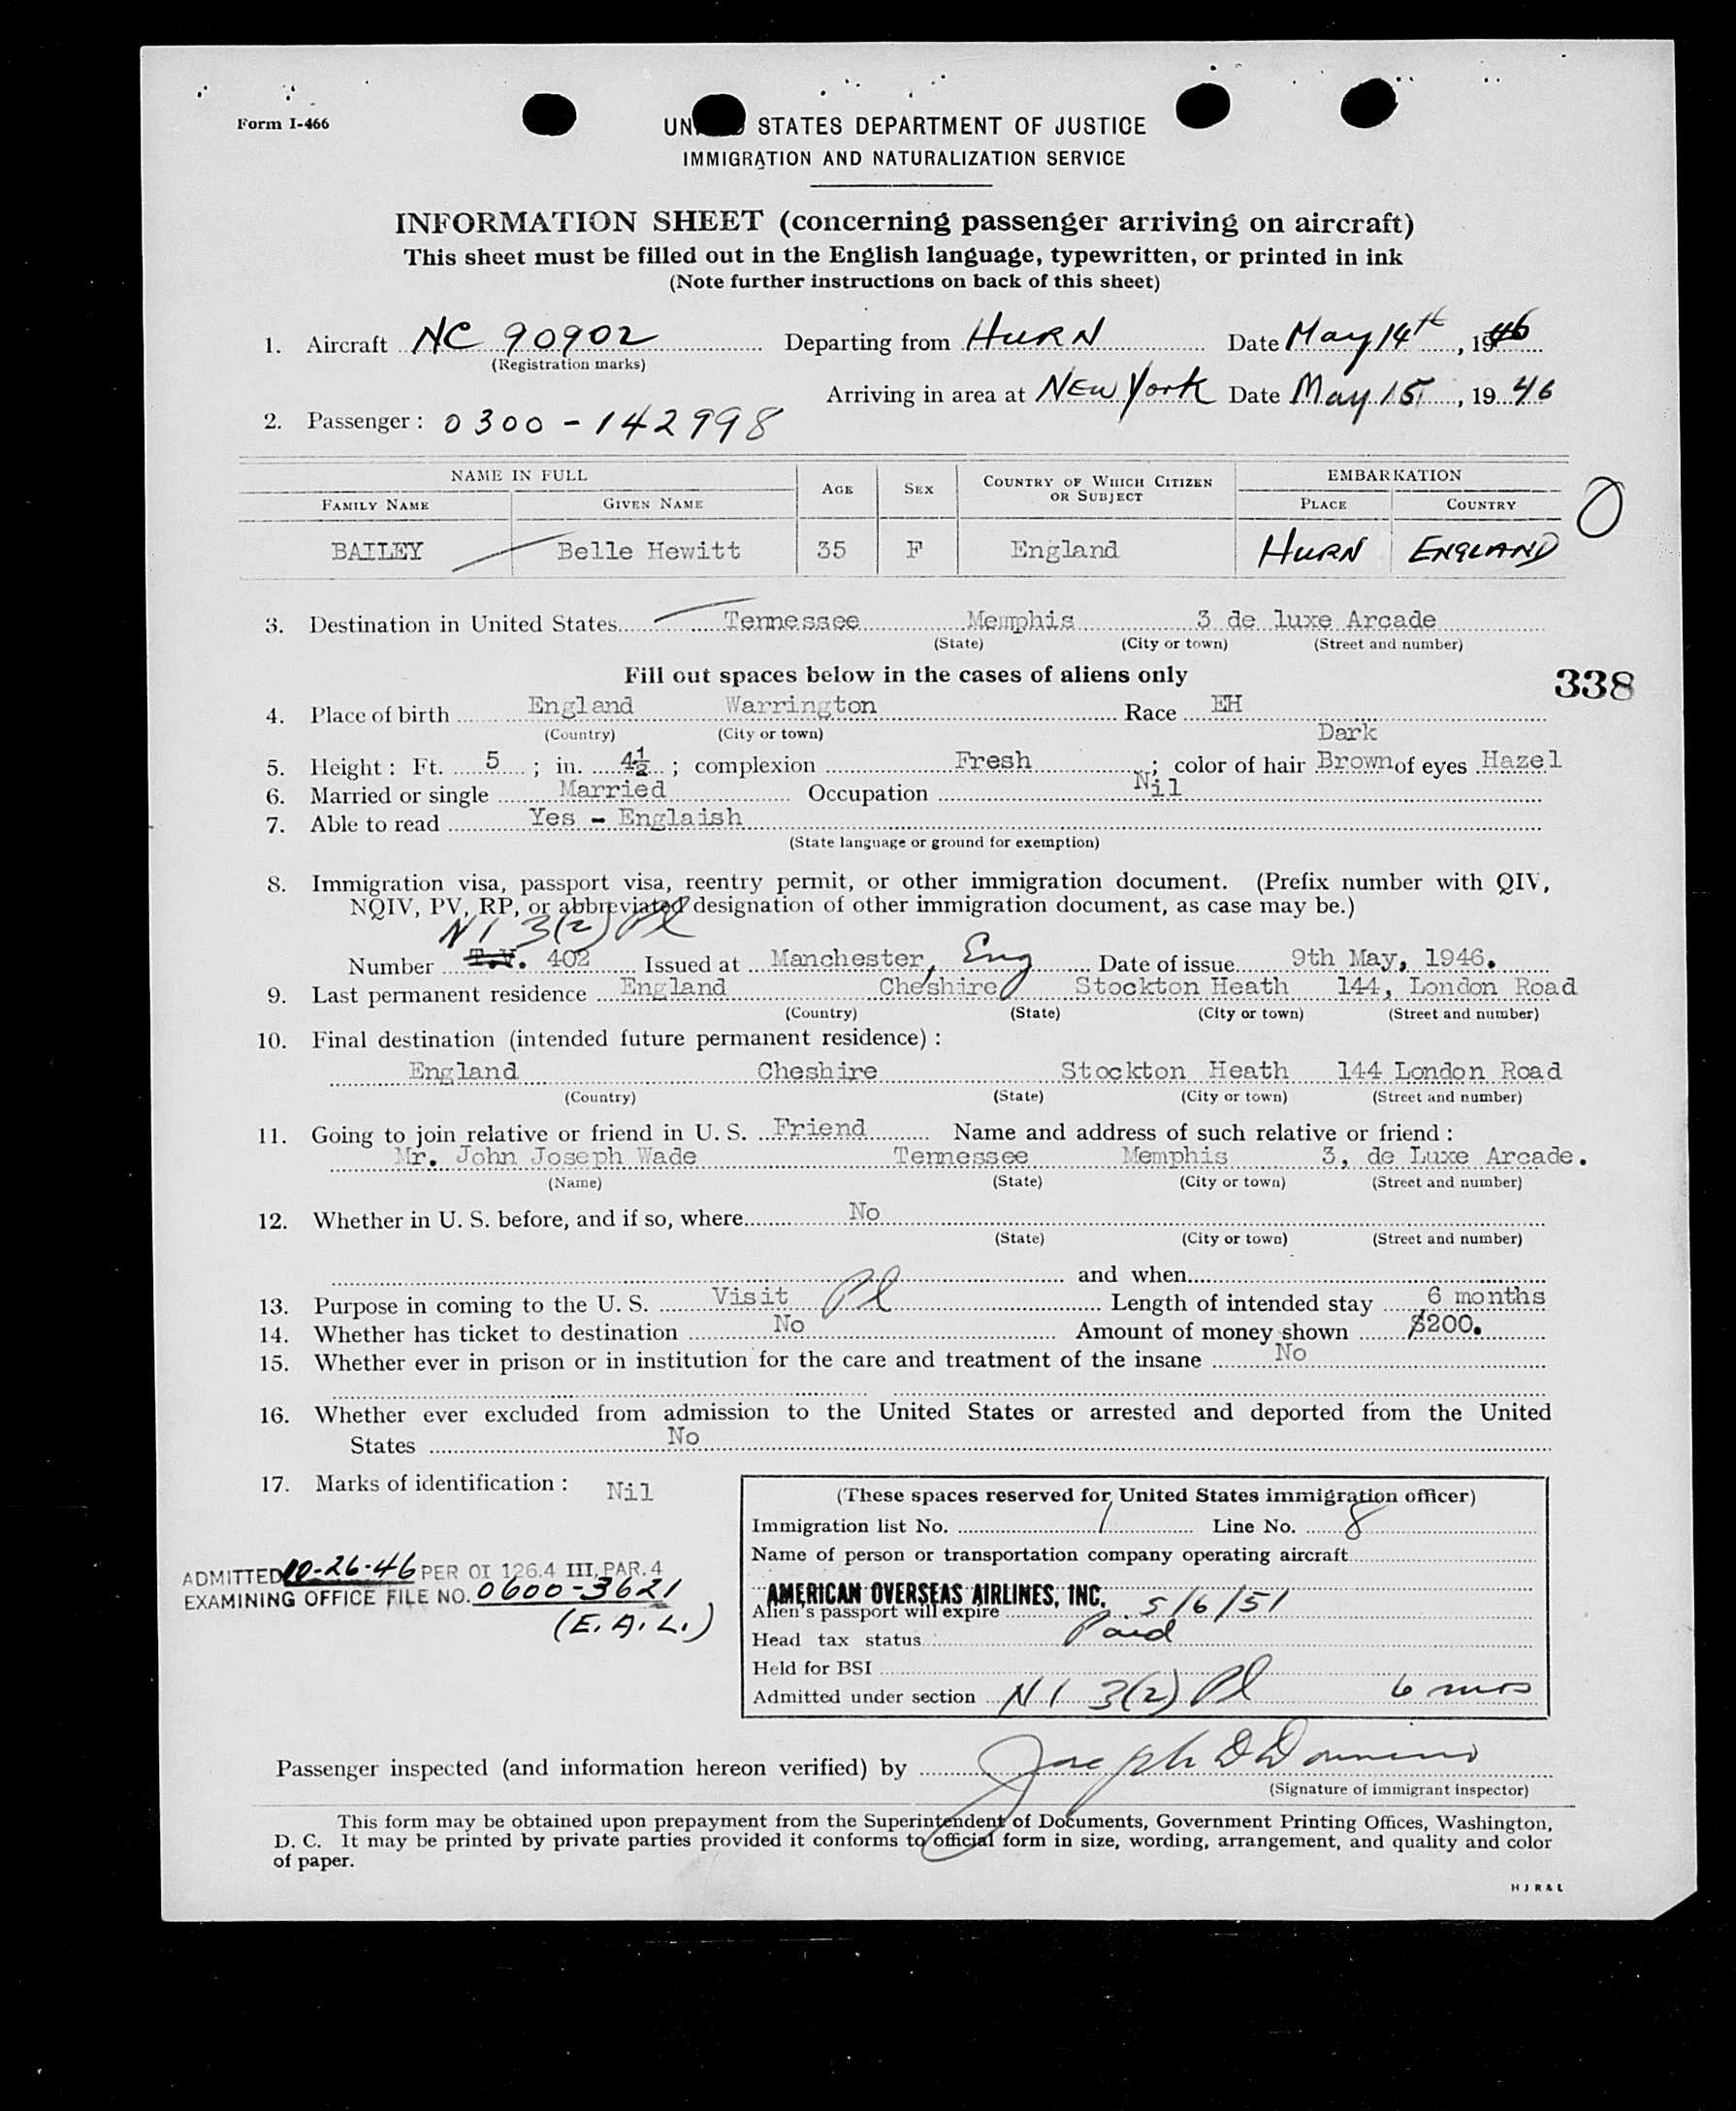 Form I-466
UNITED STATES DEPARTMENT OF JUSTICE
IMMIGRATION AND NATURALIZATION SERVICE
INFORMATION SHEET (concerning passenger arriving on aircraft)
This sheet must be filled out in the English language, typewritten, or printed in ink
(Note further instructions on back of this sheet)
1. Aircraft NC 90902 Departing from HURN Date May 14th, 1946
(Registration marks)
Arriving in area at NEW York Date May 15, 1946
2. Passenger: 0300-142998
NAME IN FULL AGE SEX COUNTRY OF WHICH CITIZEN OR SUBJECT EMBARKATION
FAMILY NAME GIVEN NAME PLACE COUNTRY
BAILEY Belle Hewitt 35 F England HURN ENGLAND
3. Destination in United States Tennessee Memphis 3 de luxe Arcade
(State) (City or town) (Street and number)
Fill out spaces below in the cases of aliens only
338
4. Place of birth England Warrington Race EH
(Country) (City or town) Dark
5. Height: Ft. 5; in. 4½; complexion Fresh; color of hair Brown of eyes Hazel
6. Married or single Married Occupation Nil
7. Able to read Yes - Englaish
(State language or ground for exemption)
8. Immigration visa, passport visa, reentry permit, or other immigration document. (Prefix number with QIV,
NQIV, PV, RP, or abbreviated designation of other immigration document, as case may be.)
NI 3(2) Pl
Number T.V. 402 Issued at Manchester, Eng Date of issue 9th May, 1946.
9. Last permanent residence England Cheshire Stockton Heath 144, London Road
(Country) (State) (City or town) (Street and number)
10. Final destination (intended future permanent residence):
England Cheshire Stockton Heath 144 London Road
(Country) (State) (City or town) (Street and number)
11. Going to join relative or friend in U. S. Friend Name and address of such relative or friend:
Mr. John Joseph Wade Tennessee Memphis 3, de Luxe Arcade.
(Name) (State) (City or town) (Street and number)
12. Whether in U. S. before, and if so, where No
(State) (City or town) (Street and number)
and when
13. Purpose in coming to the U. S. Visit Pl Length of intended stay 6 months
14. Whether has ticket to destination No Amount of money shown $200.
15. Whether ever in prison or in institution for the care and treatment of the insane No
16. Whether ever excluded from admission to the United States or arrested and deported from the United
States No
17. Marks of identification: Nil
(These spaces reserved for United States immigration officer)
Immigration list No. 1 Line No. 8
Name of person or transportation company operating aircraft
AMERICAN OVERSEAS AIRLINES, INC.
Alien's passport will expire 5/6/51
Head tax status Paid
Held for BSI
Admitted under section NI 3(2) Pl 6 mos
ADMITTED 10-26-46 PER OI 126.4 III, PAR. 4
EXAMINING OFFICE FILE NO. 0600-3621
(E.A.L.)
Passenger inspected (and information hereon verified) by Joseph D
(Signature of immigrant inspector)
This form may be obtained upon prepayment from the Superintendent of Documents, Government Printing Offices, Washington,
D. C. It may be printed by private parties provided it conforms to official form in size, wording, arrangement, and quality and color
of paper.
HJR&L